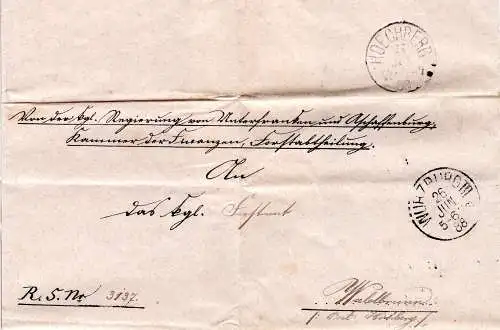 HOECHBERG
Von der kgl. Regierung von Unterfranken und Aschaffenburg,
Kammer der Finanzen, Forstabtheilung.
An
das kgl. Forstamt
WÜRZBURG III
26
JUN
5-6
88
R. S. No 3137.
Waldbrunn